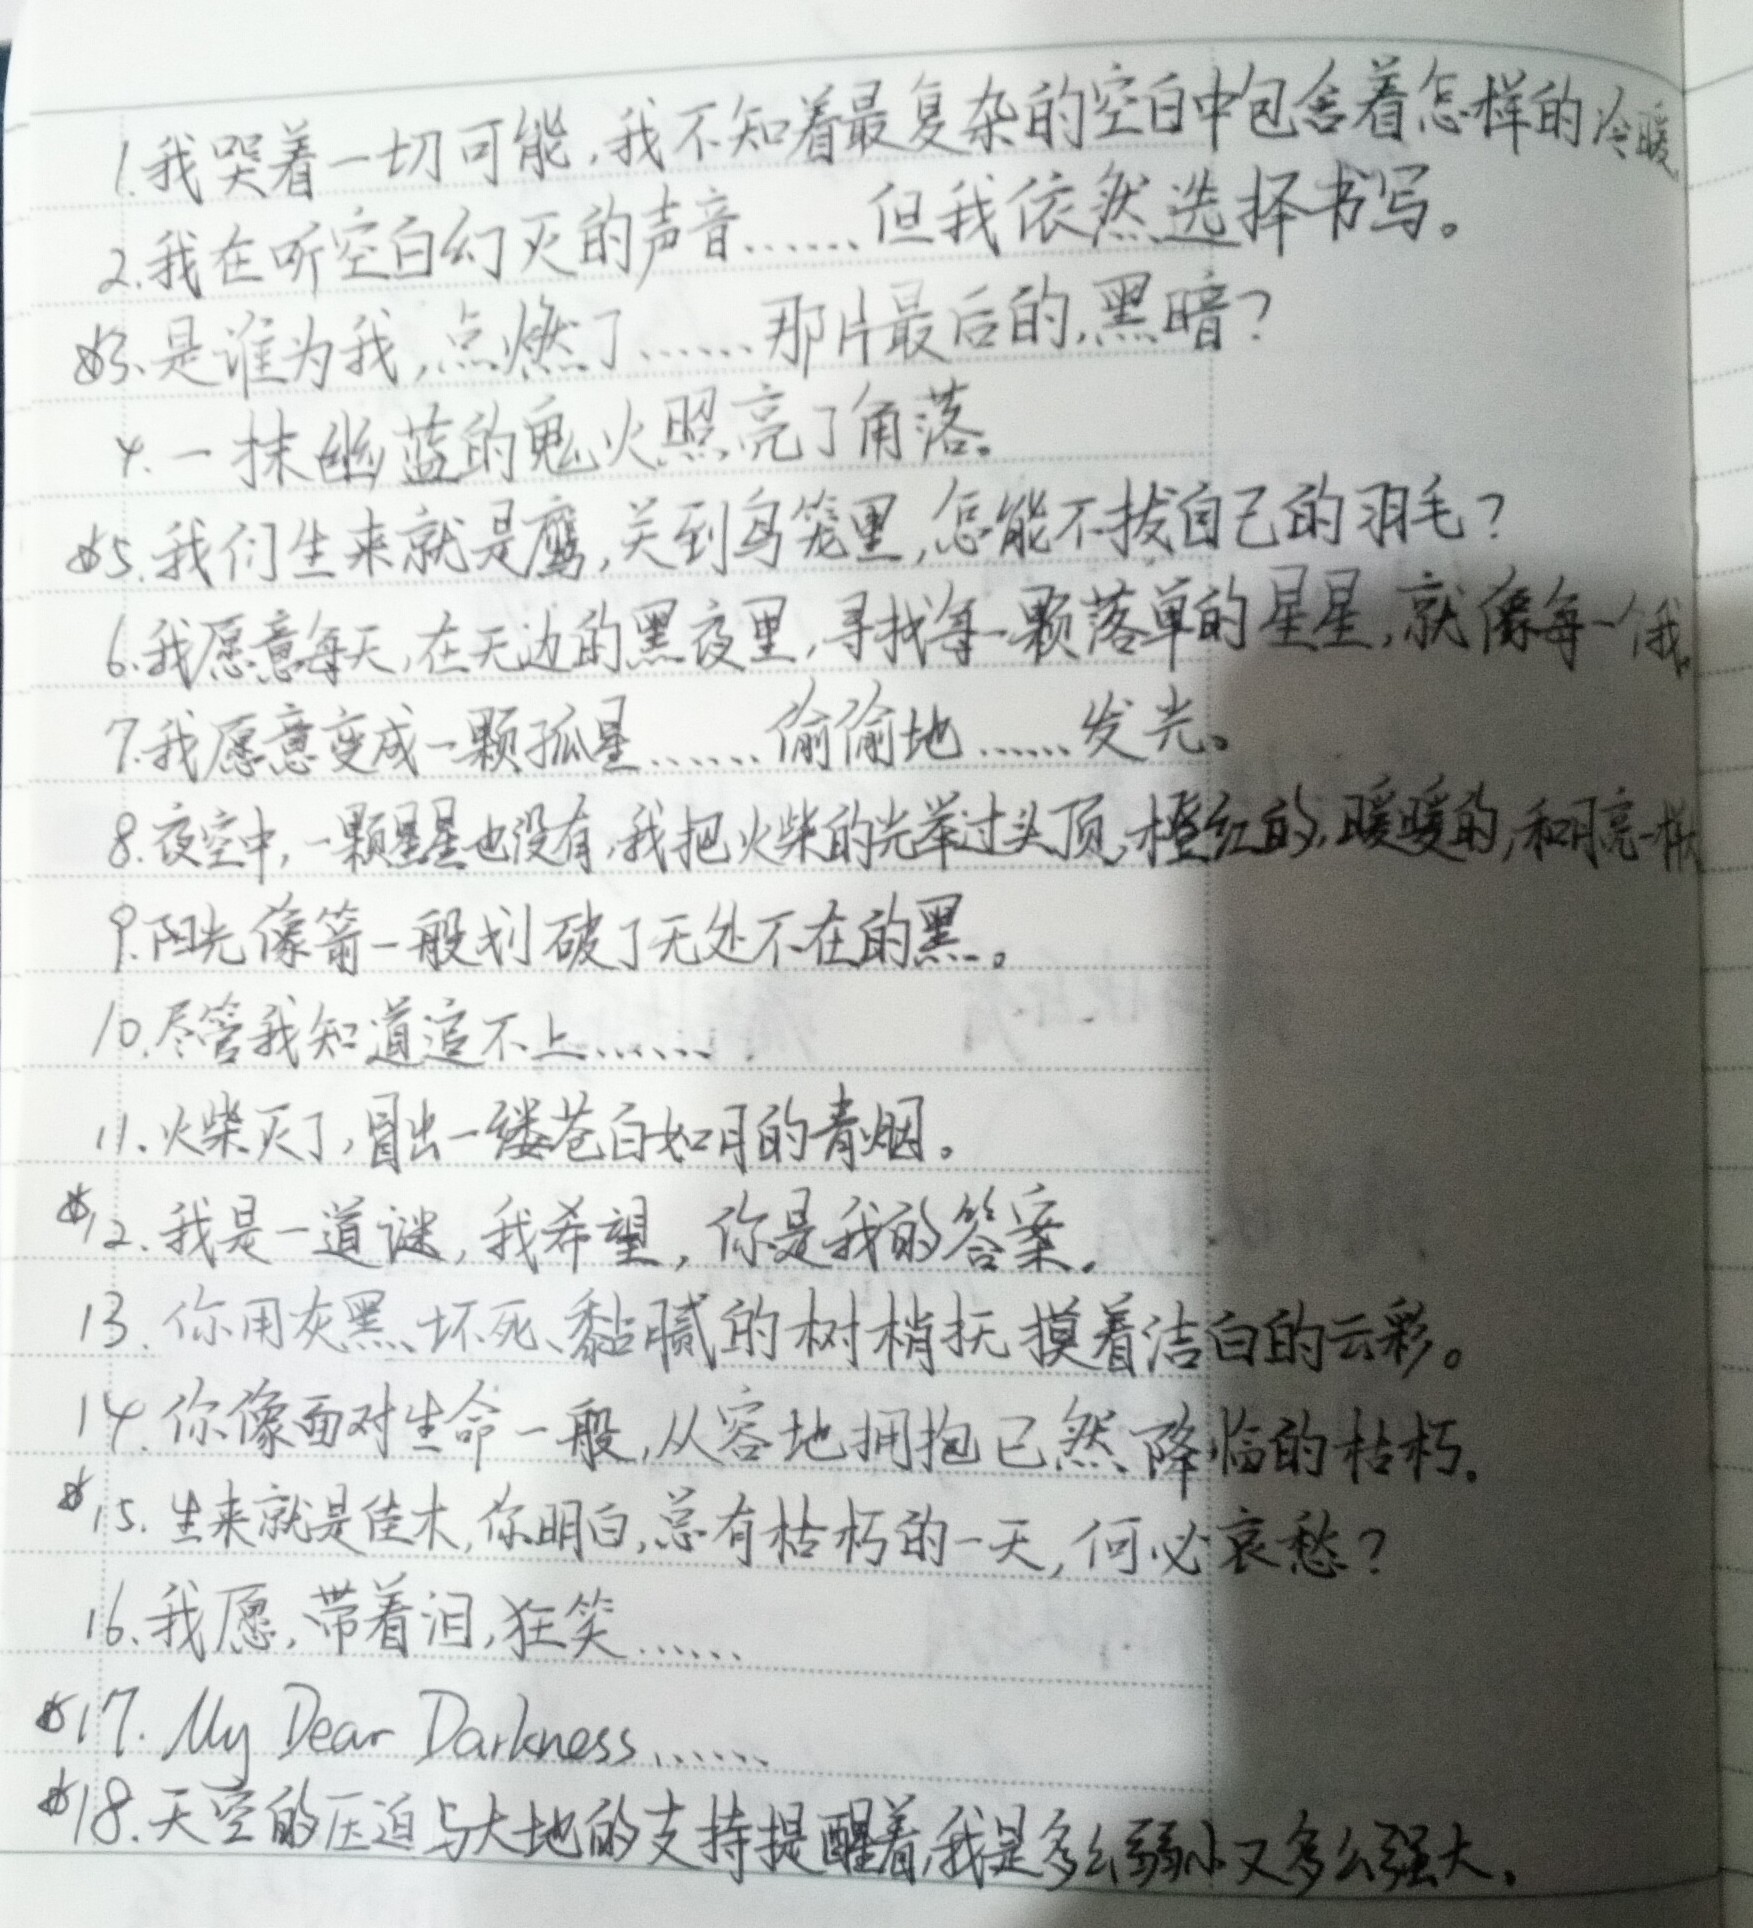 1.我哭着一切可能,我不知着最复杂的空白中包含着怎样的冷暖。
2.我在听空白幻灭的声音……但我依然选择书写。
☆3.是谁为我,点燃了……那片最后的,黑暗?
4.一抹幽蓝的鬼火照亮了角落。
☆5.我们生来就是鹰,关到鸟笼里,怎能不拔自己的羽毛?
6.我愿意每天,在无边的黑夜里,寻找每一颗落单的星星,就像每一个我。
7.我愿意变成一颗孤星……偷偷地……发光。
8.夜空中,一颗星星也没有,我把火柴的光举过头顶,橙红的,暖暖的,和月亮一样
9.阳光像箭一般划破了无处不在的黑。
10.尽管我知道追不上……
11.火柴灭了,冒出一缕苍白如月的青烟。
☆12.我是一道谜,我希望,你是我的答案.
13.你用灰黑、坏死、黏腻的树梢抚摸着洁白的云彩。
14.你像面对生命一般,从容地拥抱已然降临的枯朽.
☆15.生来就是佳木,你明白,总有枯朽的一天,何必哀愁?
16.我愿,带着泪,狂笑……
☆17.My Dear Darkness……
☆18.天空的压迫与大地的支持提醒着,我是多么弱小又多么强大.